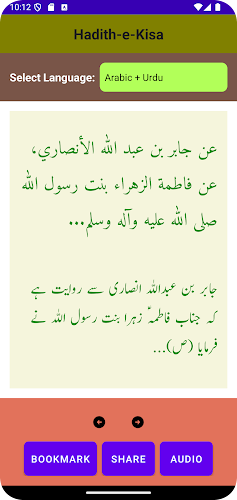 10:12
Hadith-e-Kisa
Select Language: Arabic + Urdu
عن جابر بن عبد الله الأنصاري،
عن فاطمة الزهراء بنت رسول الله
صلى الله عليه وآله وسلم...
جابر بن عبداللہ انصاری سے روایت ہے
کہ جناب فاطمہؑ زہرا بنت رسول اللہ نے
فرمایا (ص)...
BOOKMARK SHARE AUDIO